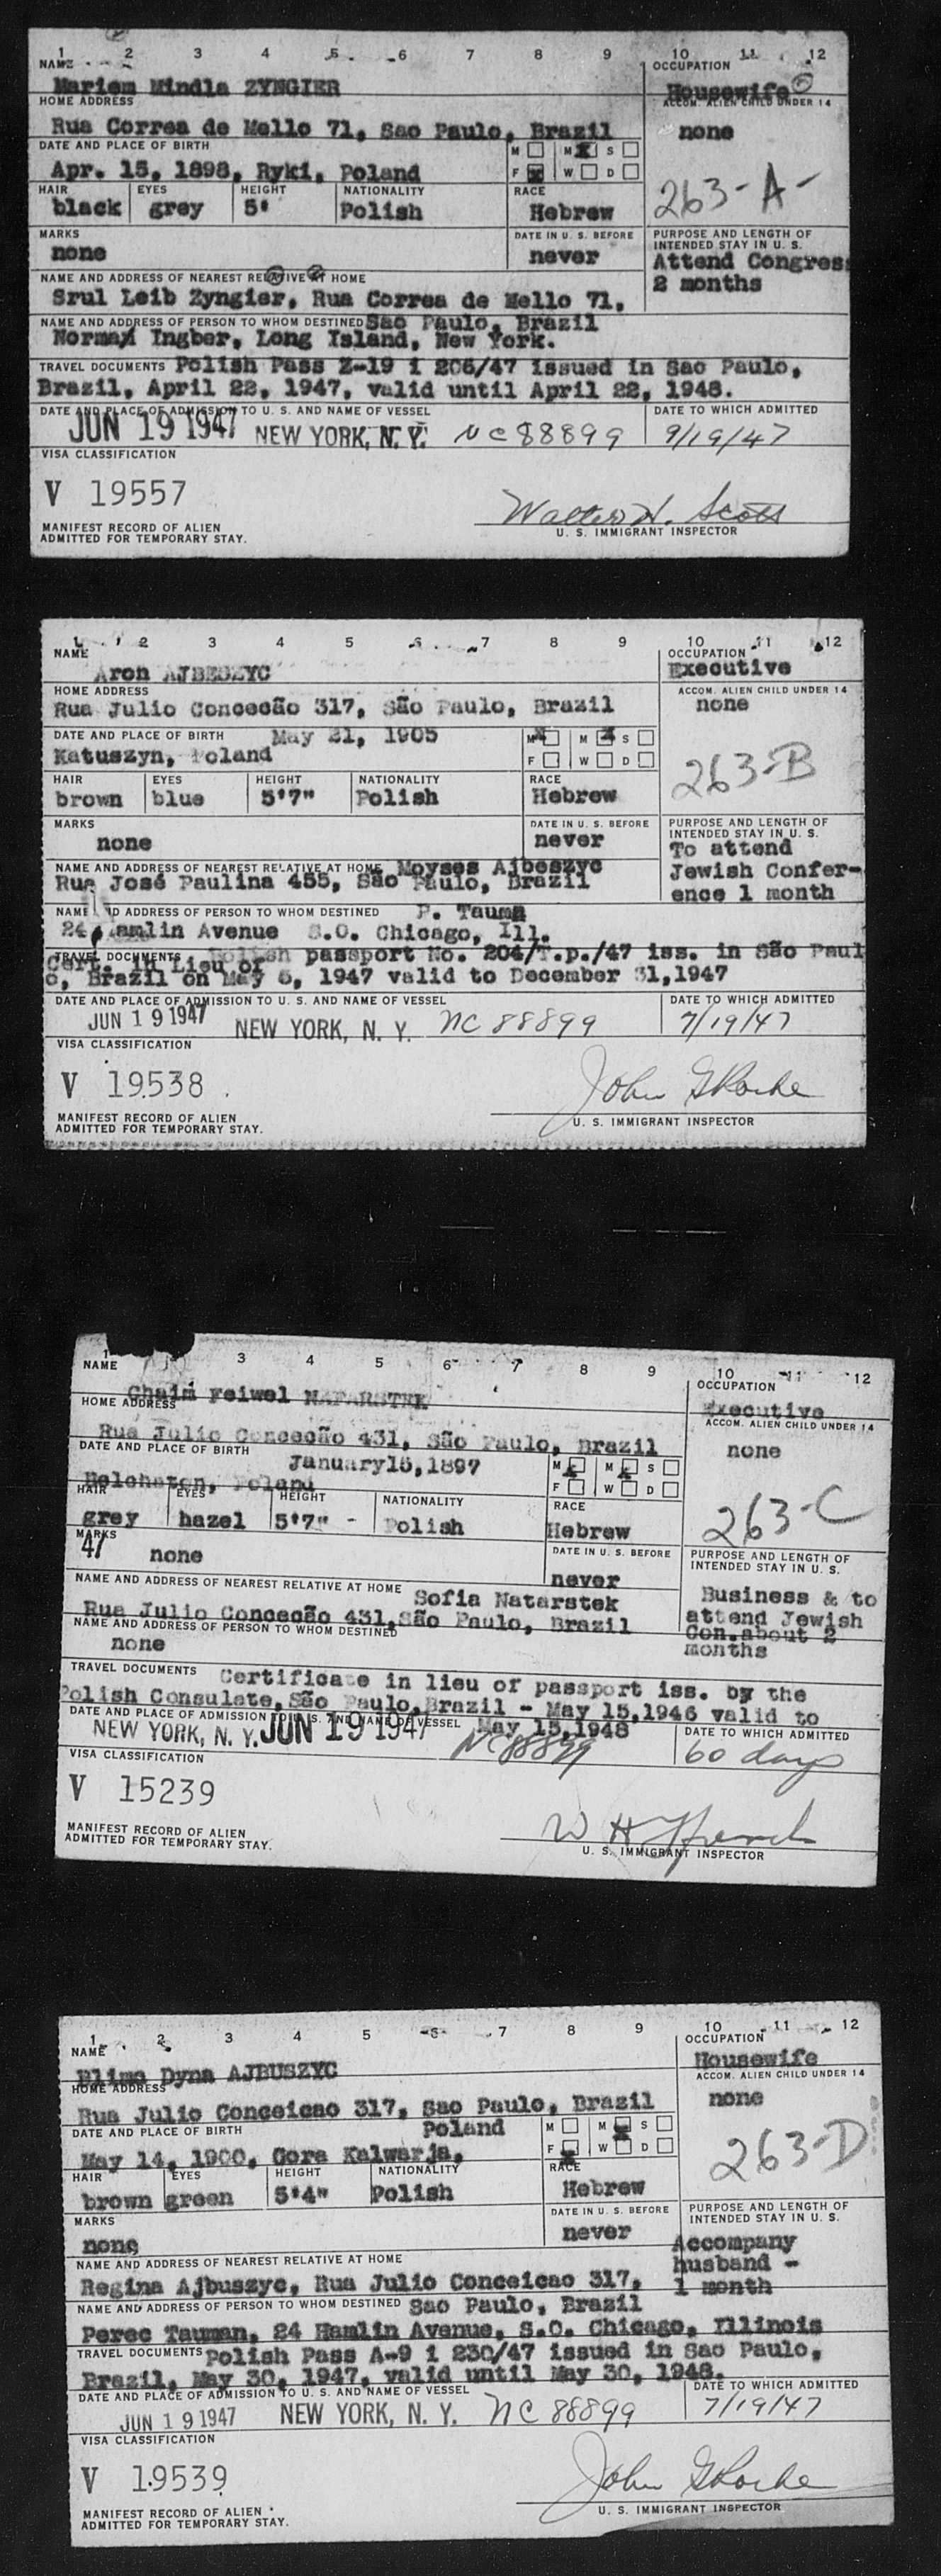 1 2 3 4 5 6 7 8 9 10 11 12
NAME OCCUPATION
Mariem Mindla ZYNGIER Housewife
HOME ADDRESS ACCOM. ALIEN CHILD UNDER 14
Rua Correa de Mello 71, Sao Paulo, Brazil none
DATE AND PLACE OF BIRTH M M S
Apr. 15, 1898, Ryki, Poland F W D
HAIR EYES HEIGHT NATIONALITY RACE 263-A-
black grey 5' Polish Hebrew
MARKS DATE IN U. S. BEFORE PURPOSE AND LENGTH OF INTENDED STAY IN U. S.
none never Attend Congress
NAME AND ADDRESS OF NEAREST RELATIVE AT HOME 2 months
Srul Leib Zyngier, Rua Correa de Mello 71,
NAME AND ADDRESS OF PERSON TO WHOM DESTINED Sao Paulo, Brazil
Norman Ingber, Long Island, New York.
TRAVEL DOCUMENTS Polish Pass Z-19 i 206/47 issued in Sao Paulo,
Brazil, April 22, 1947, valid until April 22, 1948.
DATE AND PLACE OF ADMISSION TO U. S. AND NAME OF VESSEL DATE TO WHICH ADMITTED
JUN 19 1947 NEW YORK, N. Y. NC 88899 9/19/47
VISA CLASSIFICATION
V 19557
Walter H. Scott
MANIFEST RECORD OF ALIEN U. S. IMMIGRANT INSPECTOR
ADMITTED FOR TEMPORARY STAY.
1 2 3 4 5 6 7 8 9 10 11 12
NAME OCCUPATION
Aron AJBESZYC Executive
HOME ADDRESS ACCOM. ALIEN CHILD UNDER 14
Rua Julio Concecão 317, São Paulo, Brazil none
DATE AND PLACE OF BIRTH May 21, 1905 M M S
Katuszyn, Poland F W D
HAIR EYES HEIGHT NATIONALITY RACE 263-B
brown blue 5'7" Polish Hebrew
MARKS DATE IN U. S. BEFORE PURPOSE AND LENGTH OF INTENDED STAY IN U. S.
none never To attend
NAME AND ADDRESS OF NEAREST RELATIVE AT HOME Moyses Ajbeszyc Jewish Confer-
Rua José Paulina 455, São Paulo, Brazil ence 1 month
NAME AND ADDRESS OF PERSON TO WHOM DESTINED P. Tauma
24 Hamlin Avenue S.O. Chicago, Ill.
TRAVEL DOCUMENTS Polish passport No. 204/T.p./47 iss. in São Paul
Cert. in Lieu of
o, Brazil on May 6, 1947 valid to December 31,1947
DATE AND PLACE OF ADMISSION TO U. S. AND NAME OF VESSEL DATE TO WHICH ADMITTED
JUN 19 1947 NEW YORK, N. Y. NC 88899 7/19/47
VISA CLASSIFICATION
V 19538
MANIFEST RECORD OF ALIEN U. S. IMMIGRANT INSPECTOR
ADMITTED FOR TEMPORARY STAY.
1 3 4 5 6 7 8 9 10 11 12
NAME OCCUPATION
Chaim Feiwel NATARSTEK Executive
HOME ADDRESS ACCOM. ALIEN CHILD UNDER 14
Rua Julio Concecão 431, São Paulo, Brazil none
DATE AND PLACE OF BIRTH January15,1897 M M S
Belchaton, Poland F W D
HAIR EYES HEIGHT NATIONALITY RACE 263-C
grey hazel 5'7" - Polish Hebrew
MARKS DATE IN U. S. BEFORE PURPOSE AND LENGTH OF INTENDED STAY IN U. S.
47 none never
NAME AND ADDRESS OF NEAREST RELATIVE AT HOME Sofia Natarstek Business & to
Rua Julio Concecão 431,São Paulo, Brazil attend Jewish
NAME AND ADDRESS OF PERSON TO WHOM DESTINED Con.about 2
none months
TRAVEL DOCUMENTS Certificate in lieu of passport iss. by the
Polish Consulate,São Paulo,Brazil - May 15,1946 valid to
DATE AND PLACE OF ADMISSION TO U. S. AND NAME OF VESSEL May 15,1948 DATE TO WHICH ADMITTED
NEW YORK, N. Y. JUN 19 1947 NC88899 60 days
VISA CLASSIFICATION
V 15239
MANIFEST RECORD OF ALIEN U. S. IMMIGRANT INSPECTOR
ADMITTED FOR TEMPORARY STAY.
1 2 3 4 5 6 7 8 9 10 11 12
NAME OCCUPATION
Blima Dyna AJBUSZYC Housewife
HOME ADDRESS ACCOM. ALIEN CHILD UNDER 14
Rua Julio Conceicao 317, Sao Paulo, Brazil none
DATE AND PLACE OF BIRTH Poland M M S
May 14, 1900, Gora Kalwarja, F W D
HAIR EYES HEIGHT NATIONALITY RACE 263-D
brown green 5'4" Polish Hebrew
MARKS DATE IN U. S. BEFORE PURPOSE AND LENGTH OF INTENDED STAY IN U. S.
none never Accompany
NAME AND ADDRESS OF NEAREST RELATIVE AT HOME husband -
Regina Ajbuszyc, Rua Julio Conceicao 317, 1 month
NAME AND ADDRESS OF PERSON TO WHOM DESTINED Sao Paulo, Brazil
Perec Tauman, 24 Hamlin Avenue, S.O. Chicago, Illinois
TRAVEL DOCUMENTS Polish Pass A-9 i 230/47 issued in Sao Paulo,
Brazil, May 30, 1947, valid until May 30, 1948.
DATE AND PLACE OF ADMISSION TO U. S. AND NAME OF VESSEL DATE TO WHICH ADMITTED
JUN 19 1947 NEW YORK, N. Y. NC 88899 7/19/47
VISA CLASSIFICATION
V 19539
MANIFEST RECORD OF ALIEN U. S. IMMIGRANT INSPECTOR
ADMITTED FOR TEMPORARY STAY.